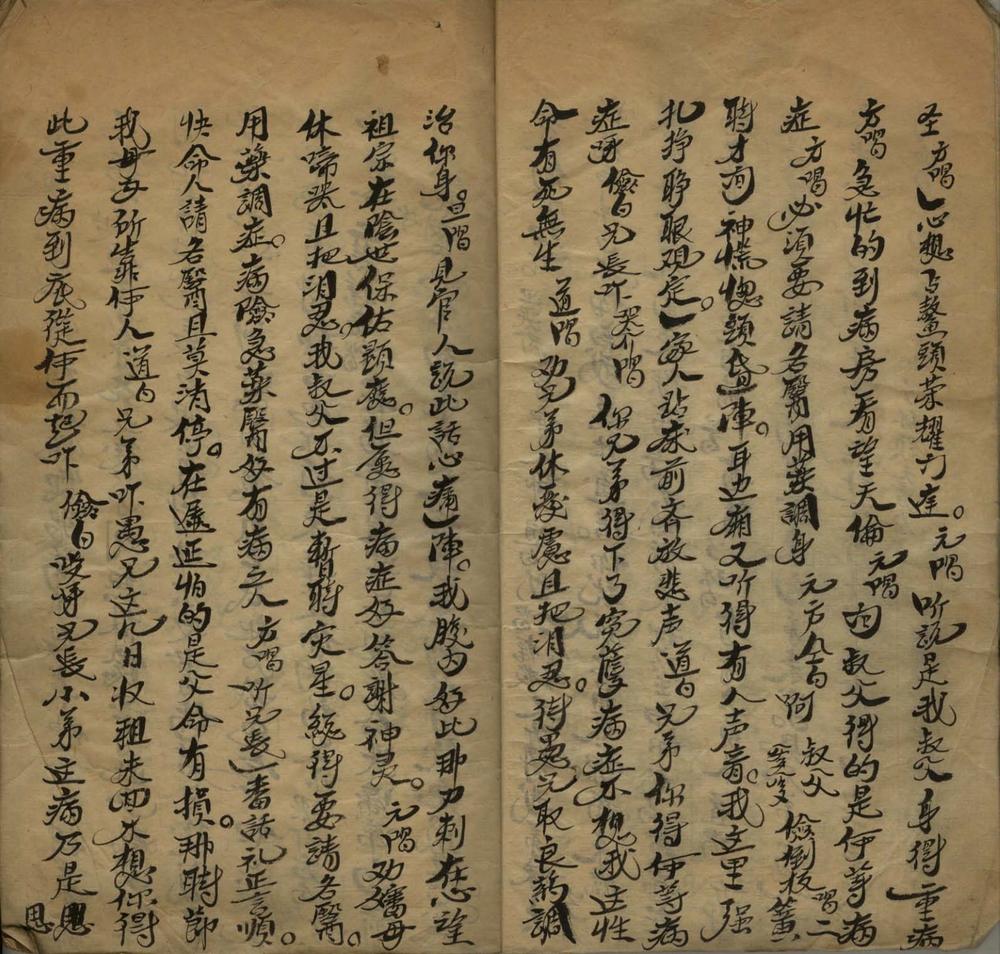 圣方唱心想占鰲頭荣耀门達。元唱听説是我叔父身得一重病
方唱急忙的到病房看望天倫元唱问叔父得的是伊等病
症方唱必須要請名醫用葯調身元方仝白阿叔父儉倒板唱二簧
時才间神慌惚頭昏一陣。耳边廂又听得有人声音。我这里强
扎挣睁眼观定。一家人站床前齐放悲声道白兄弟你得伊等病
症呀儉白兄長吓哭介唱你兄弟得下了冤孽病症不想我这性
命有死無生道唱劝兄弟休憂慮且把泪忍。待愚兄取良葯調
治你身。旦唱見官人説此話心痛一陣。我腹内好比那刀刺在心望
祖宗在陰世保佑顕應。但愿得病症好答謝神灵。元唱劝嬸母
休啼哭且把泪忍。我叔父不过是暫時灾星。総得要請名醫。
用藥調症。病險急葯醫好有病之人方唱听兄長一番話礼正言順。
快命人請名醫且莫消停。在遲延怕的是父命有損。那時節
我母子所靠伊人道白兄弟吓愚兄这几日收租未回不想你得
此重病到底從伊而起吓儉白哎呀兄長小弟这病乃是思